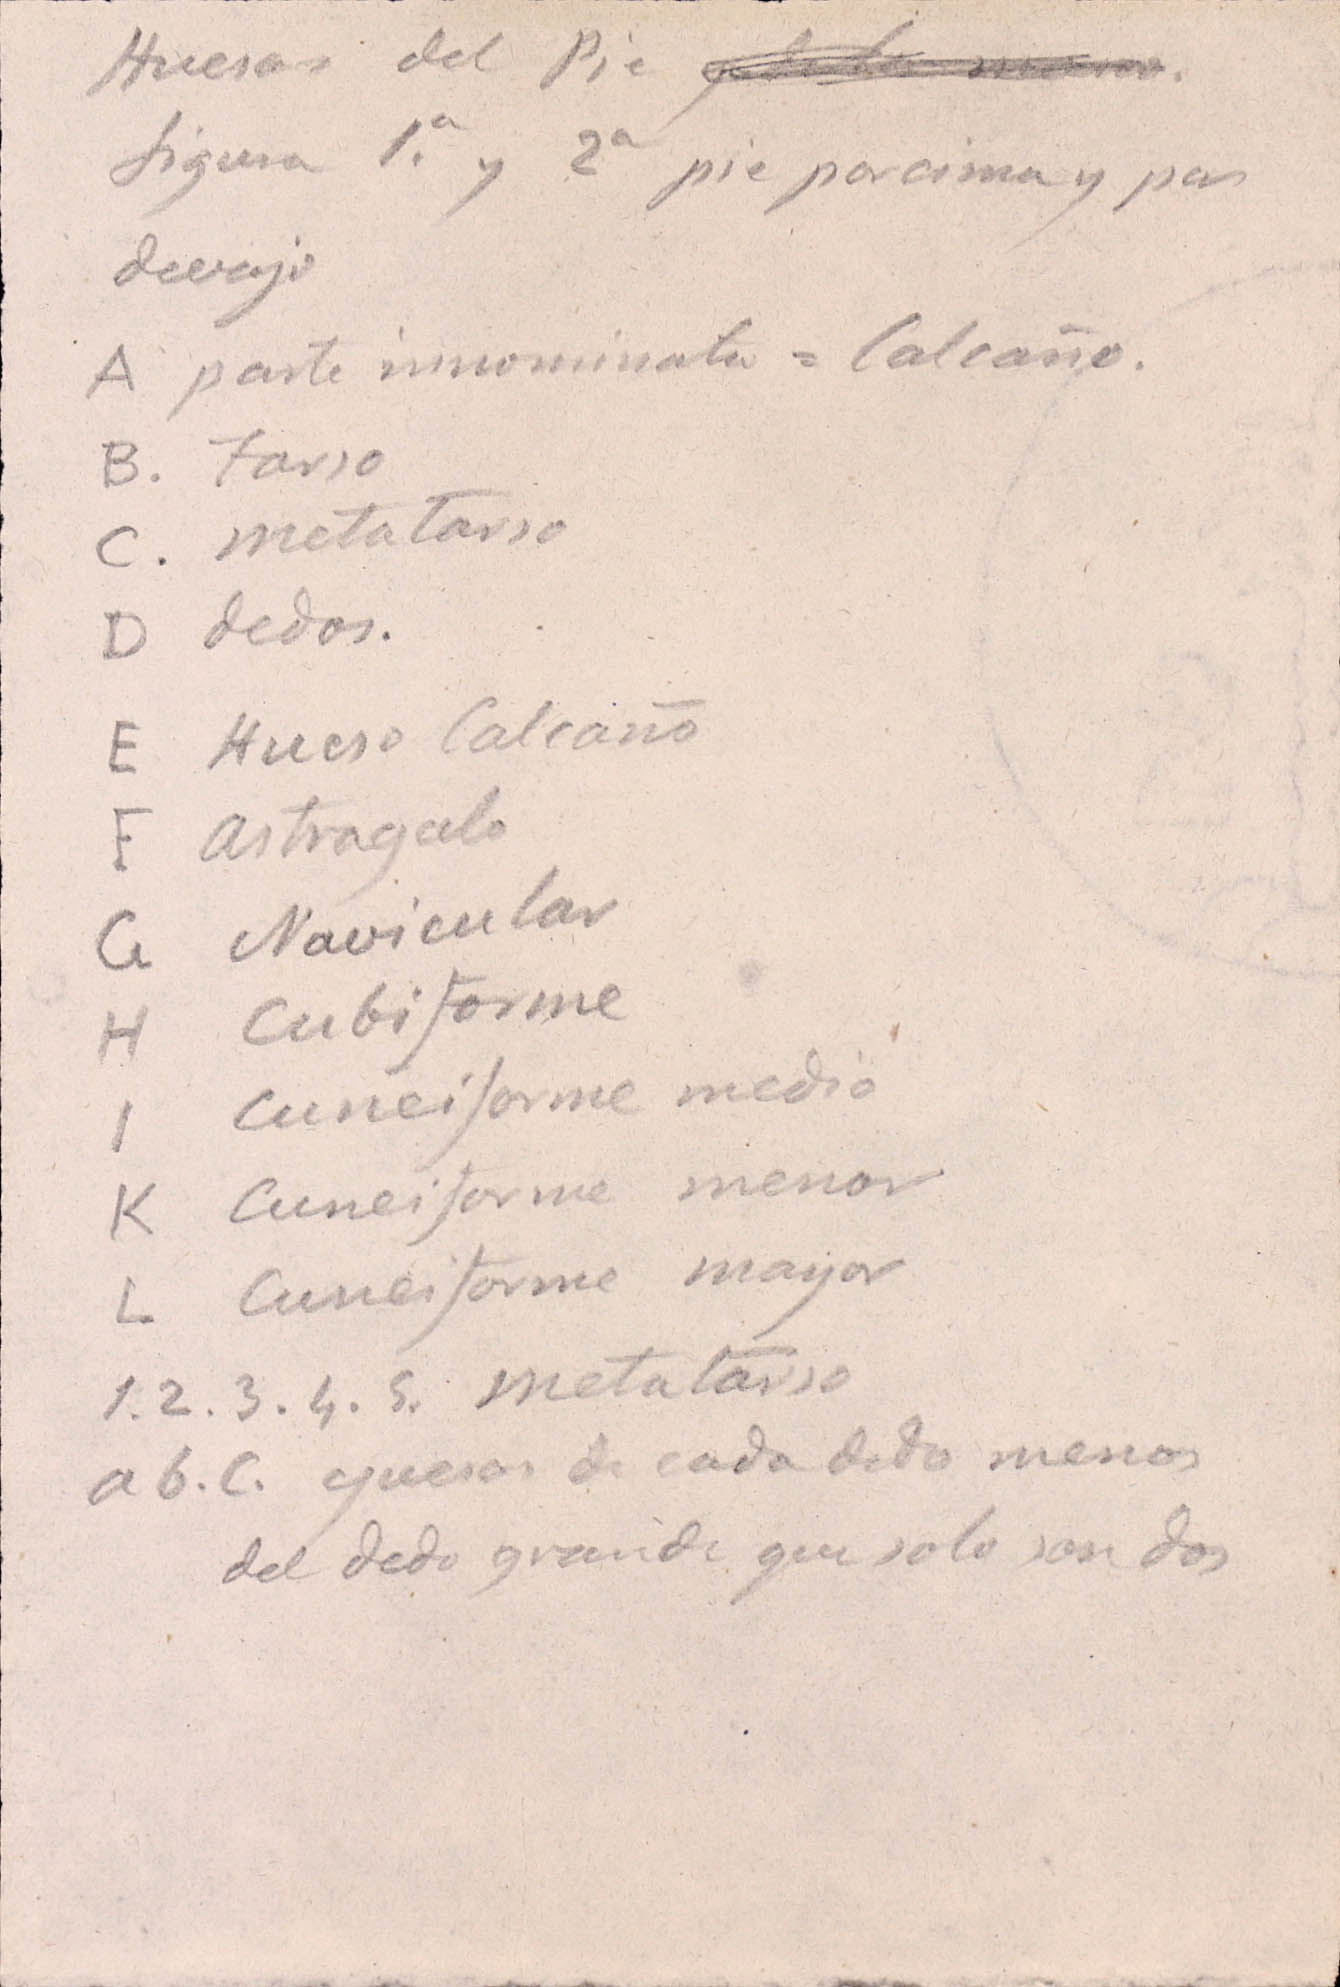 Huesos del Pie y de la mano.
figura 1.ª y 2ª pie por cima y por
devajo
A parte innominata = Calcaño.
B. Tarso
C. metatarso
D dedos.
E Hueso Calcaño
F astragalo
G Navicular
H Cubiforme
I Cuneiforme medio
K Cuneiforme menor
L Cuneiforme mayor
1.2.3.4.5. metatarso
a b. C. guesos de cada dedo menos
del dedo grande que solo son dos